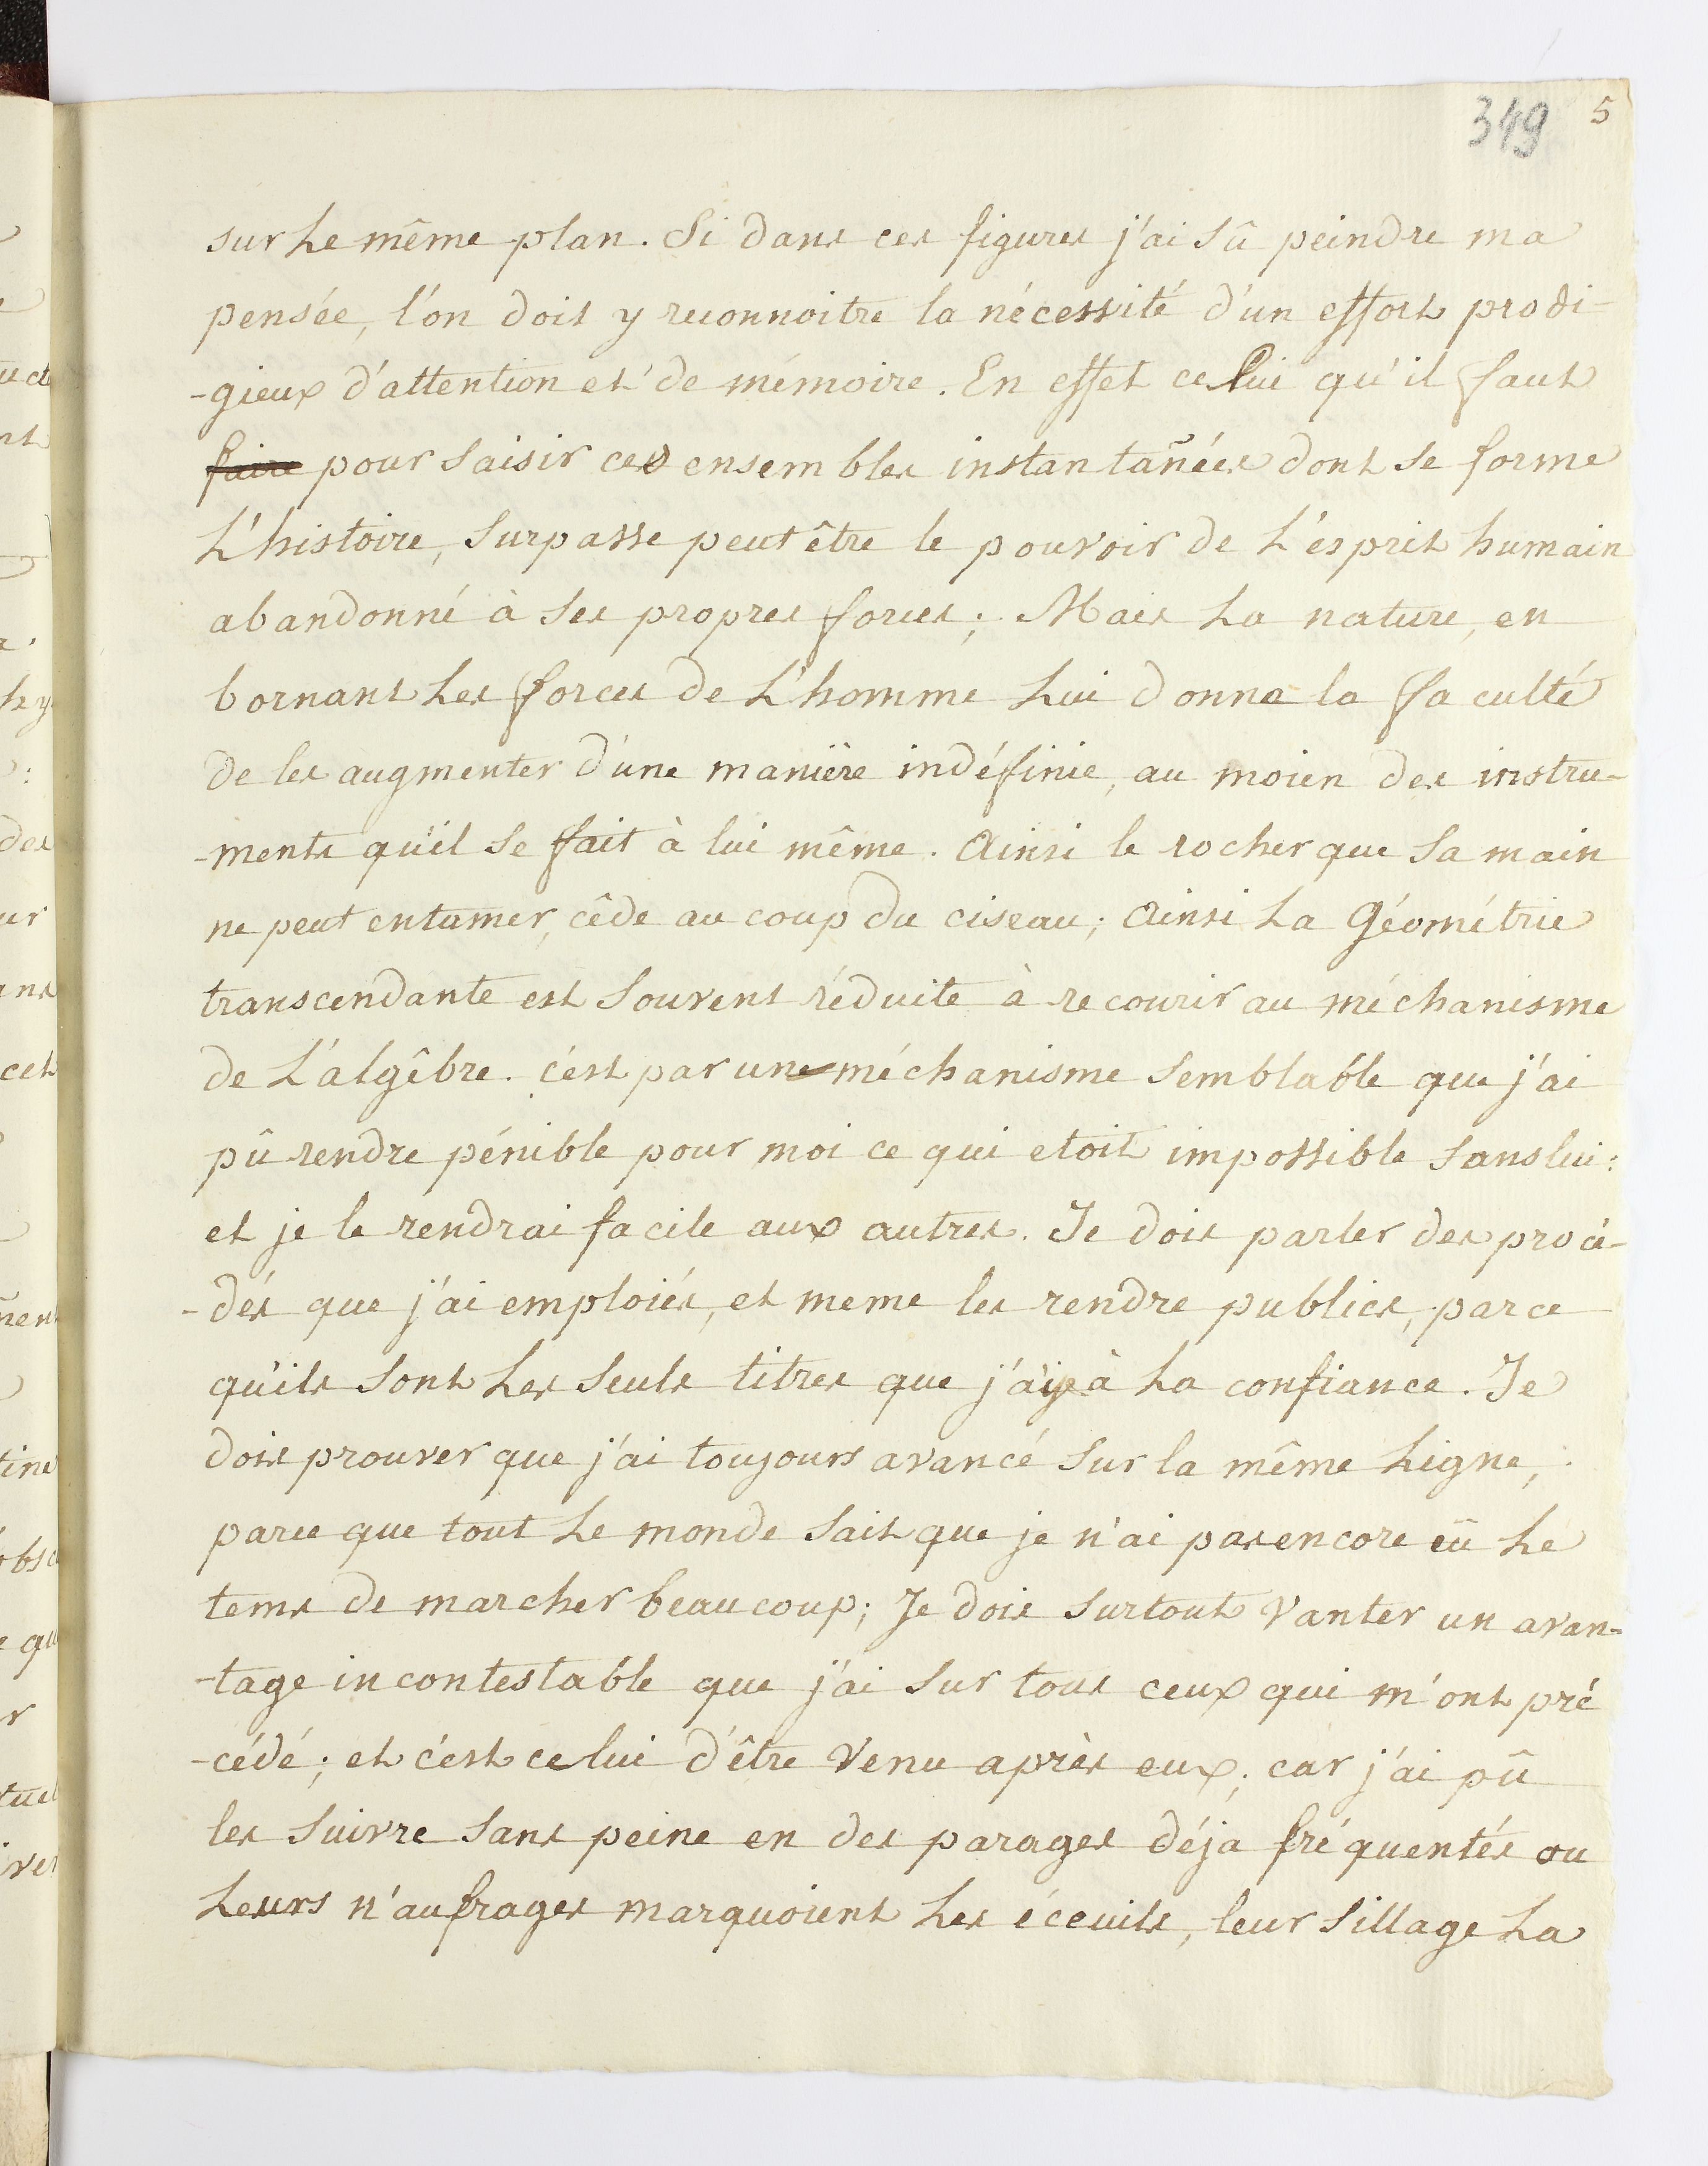 349 5
sur Le même plan. Si dans ces figures j'ai sû peindre ma
pensée, l'on doit y reconnoitre la nécessité d'un effort prodi-
-gieux d'attention et de mémoire. En effet celui qu'il faut
faire pour saisir ces ensembles instantañées dont se forme
L'histoire, surpasse peut être le pouvoir de L'ésprit humain
abandonné à ses propres forces; Mais La nature, en
bornant Les forces de L'homme Lui donne la faculté
de les augmenter d'une manière indéfinie, au moien des instru-
-ments qu'il se fait à lui même. Ainsi le rocher que sa main
ne peut entamer, cêde au coup du ciseau; Ainsi La Géométrie
transcendante est souvent réduite à recourir au méchanisme
de L'algêbre. c'est par une méchanisme semblable que j'ai
pû rendre pénible pour moi ce qui etoit impossible sans lui:
et je le rendrai facile aux autres. Je dois parler des procé-
-dés que j'ai emploiés, et meme les rendre publics, parce
qu'ils sont Les seuls titres que j'aye à La confiance. Je
dois prouver que j'ai toujours avancé sur la même Ligne,
parce que tout Le monde sait que je n'ai pas encore eû Le
tems de marcher beaucoup; Je dois surtout vanter un avan-
-tage incontestable que j'ai sur tous ceux qui m'ont pré
-cédé; et c'est celui d'être venu après eux; car j'ai pû
les suivre sans peine en des parages déja fréquentés ou
Leurs n'aufrages marquoient Les éceuils, leur sillage La